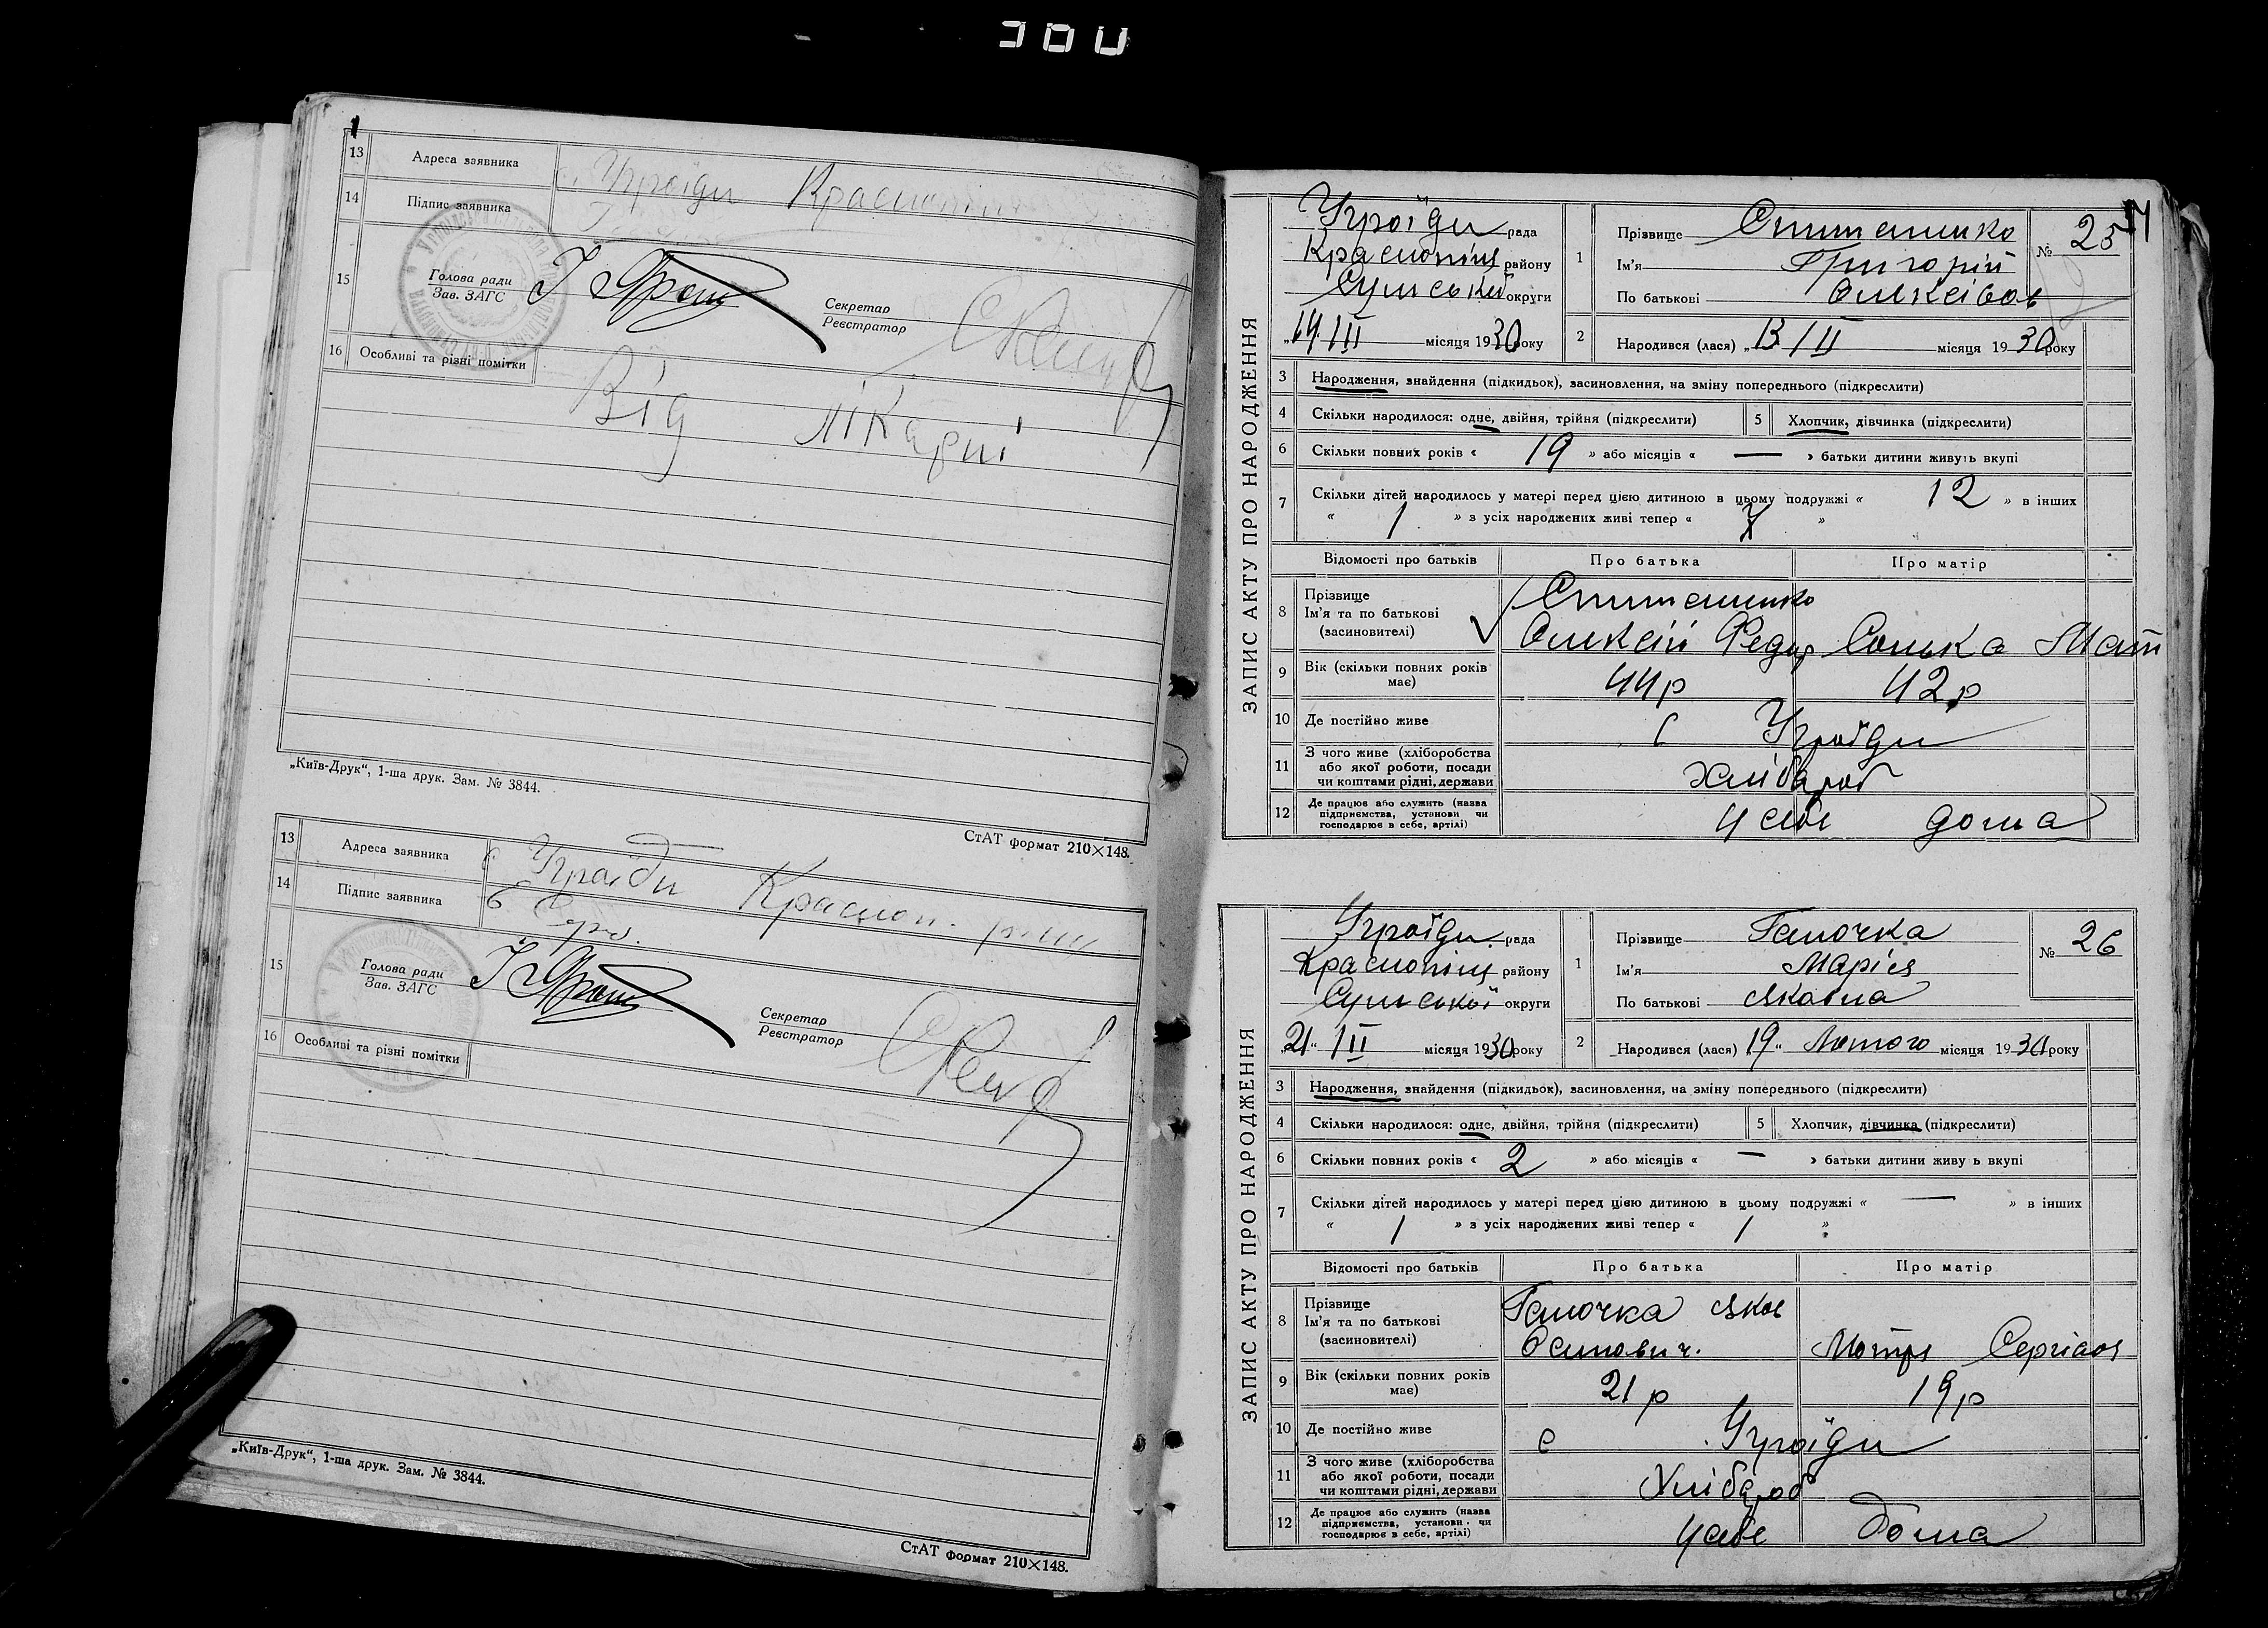 1
13 Адреса заявника с. Угроїди Краснопіл
14 Підпис заявника
15 Голова ради
Зав. ЗАГС
Секретар
Реєстратор
16 Особливі та різні помітки
Від лікарні
„Київ-Друк“, 1-ша друк. Зам. № 3844.
СтАТ формат 210×148.
13 Адреса заявника с Угроїди Красноп.
14 Підпис заявника
15 Голова ради
Зав. ЗАГС
Секретар
Реєстратор
16 Особливі та різні помітки
„Київ-Друк“, 1-ша друк. Зам. № 3844.
СтАТ формат 210×148.
ЗАПИС АКТУ ПРО НАРОДЖЕННЯ
Угроїди рада
Краснопіл району
Сумської округи
„14 III місяця 1930 року
1 Прізвище
Ім'я Григорій
По батькові Олексієв
№ 25
2 Народився (лася) „13 III місяця 1930 року
3 Народження, знайдення (підкидьок), засиновлення, на зміну попереднього (підкреслити)
4 Скільки народилося: одне, двійня, трійня (підкреслити) 5 Хлопчик, дівчинка (підкреслити)
6 Скільки повних років « 19 » або місяців « — » батьки дитини живуть вкупі
7 Скільки дітей народилось у матері перед цією дитиною в цьому подружжі « 12 » в інших
« 1 » з усіх народжених живі тепер « 7 »
Відомості про батьків Про батька Про матір
8 Прізвище
Ім'я та по батькові Олексій Федор Сонька Мат
(засиновителі)
9 Вік (скільки повних років має) 44 р 42 р
10 Де постійно живе с Угроїди
11 З чого живе (хліборобства
або якої роботи, посади
чи коштами рідні, держави Хлібороб
12 Де працює або служить (назва
підприємства, установи чи
господарює в себе, артілі) У себе дома
ЗАПИС АКТУ ПРО НАРОДЖЕННЯ
Угроїди рада
Краснопіл району
Сумської округи
„21“ III місяця 1930 року
1 Прізвище Галочка
Ім'я Марія
По батькові Яковна
№ 26
2 Народився (лася) „19“ Лютого місяця 1930 року
3 Народження, знайдення (підкидьок), засиновлення, на зміну попереднього (підкреслити)
4 Скільки народилося: одне, двійня, трійня (підкреслити) 5 Хлопчик, дівчинка (підкреслити)
6 Скільки повних років « 2 » або місяців « — » батьки дитини живу ь вкупі
7 Скільки дітей народилось у матері перед цією дитиною в цьому подружжі « — » в інших
« 1 » з усіх народжених живі тепер « 1 »
Відомості про батьків Про батька Про матір
8 Прізвище Галочка Яков
Ім'я та по батькові Осипович. Мотря Сергієв
(засиновителі)
9 Вік (скільки повних років має) 21 р 19 р
10 Де постійно живе с Угроїди
11 З чого живе (хліборобства
або якої роботи, посади
чи коштами рідні, держави Хлібороб
12 Де працює або служить (назва
підприємства, установи чи
господарює в себе, артілі) У себе дома